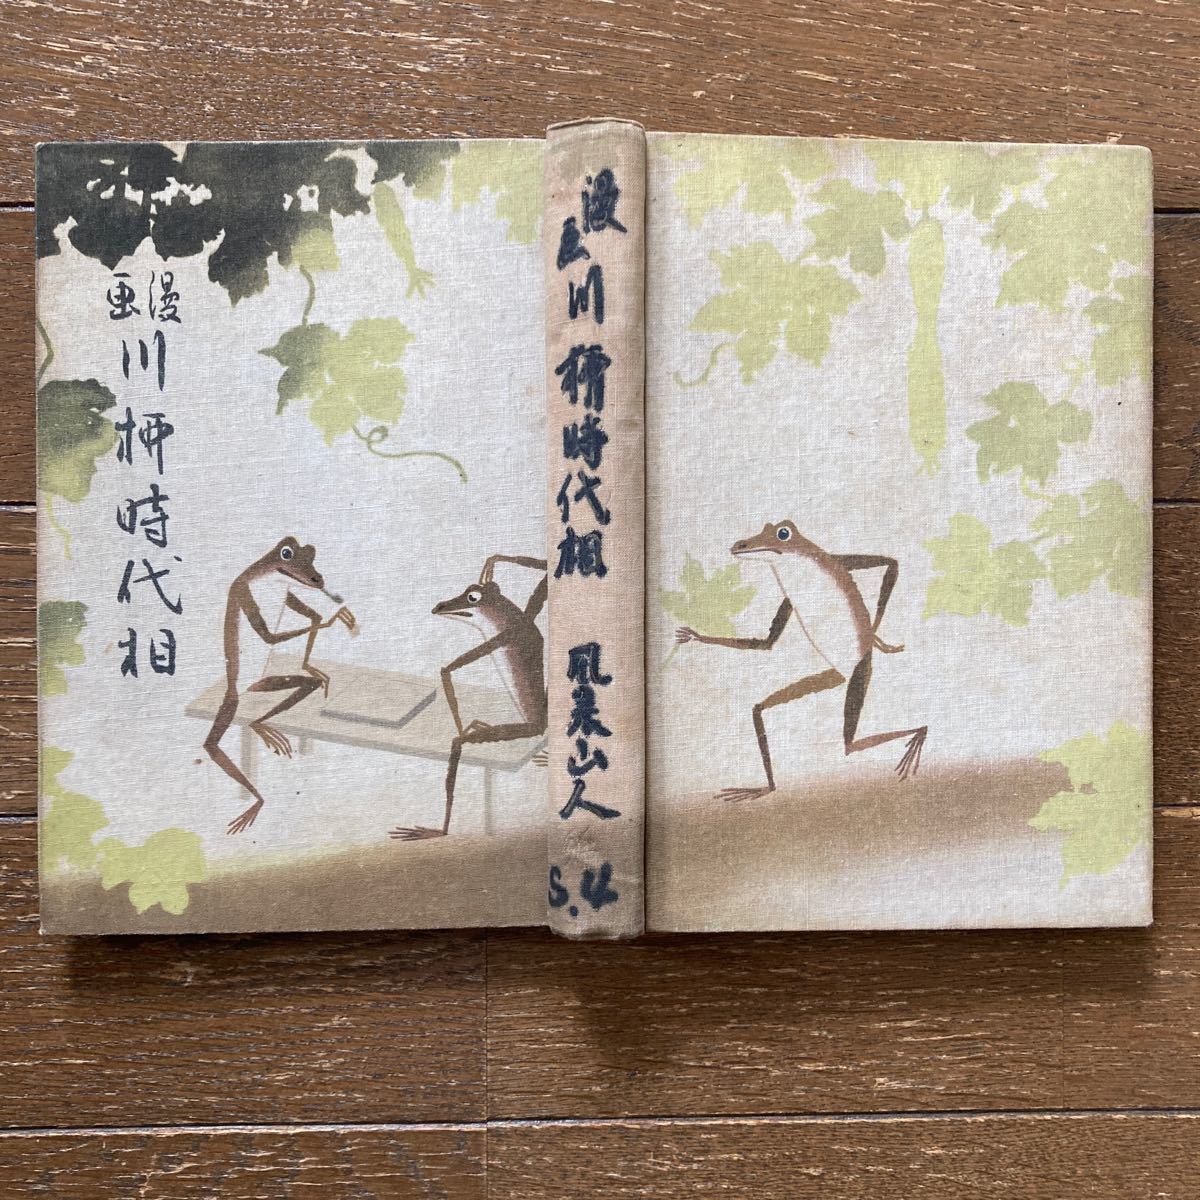 漫画
川柳時代相
漫画
川柳時代相
風来山人
S.4